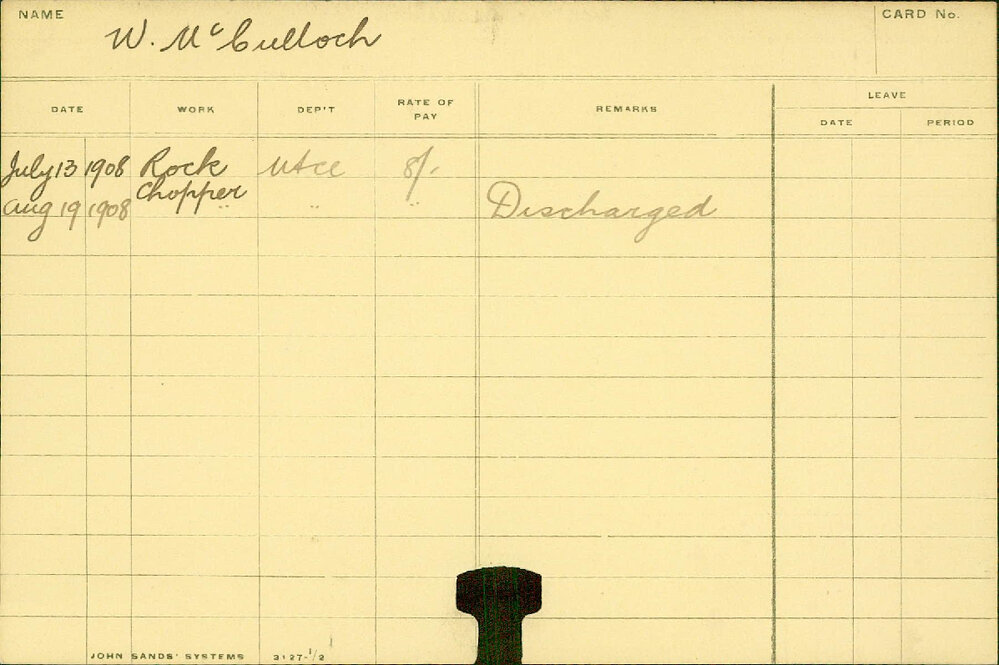 NAME
W. McCulloch
CARD No.
DATE WORK DEP'T RATE OF PAY REMARKS LEAVE
DATE PERIOD
July 13 1908 Rock Chopper Mtce 8/-
Aug 19 1908 " " " Discharged
JOHN SANDS' SYSTEMS 3127-1/2